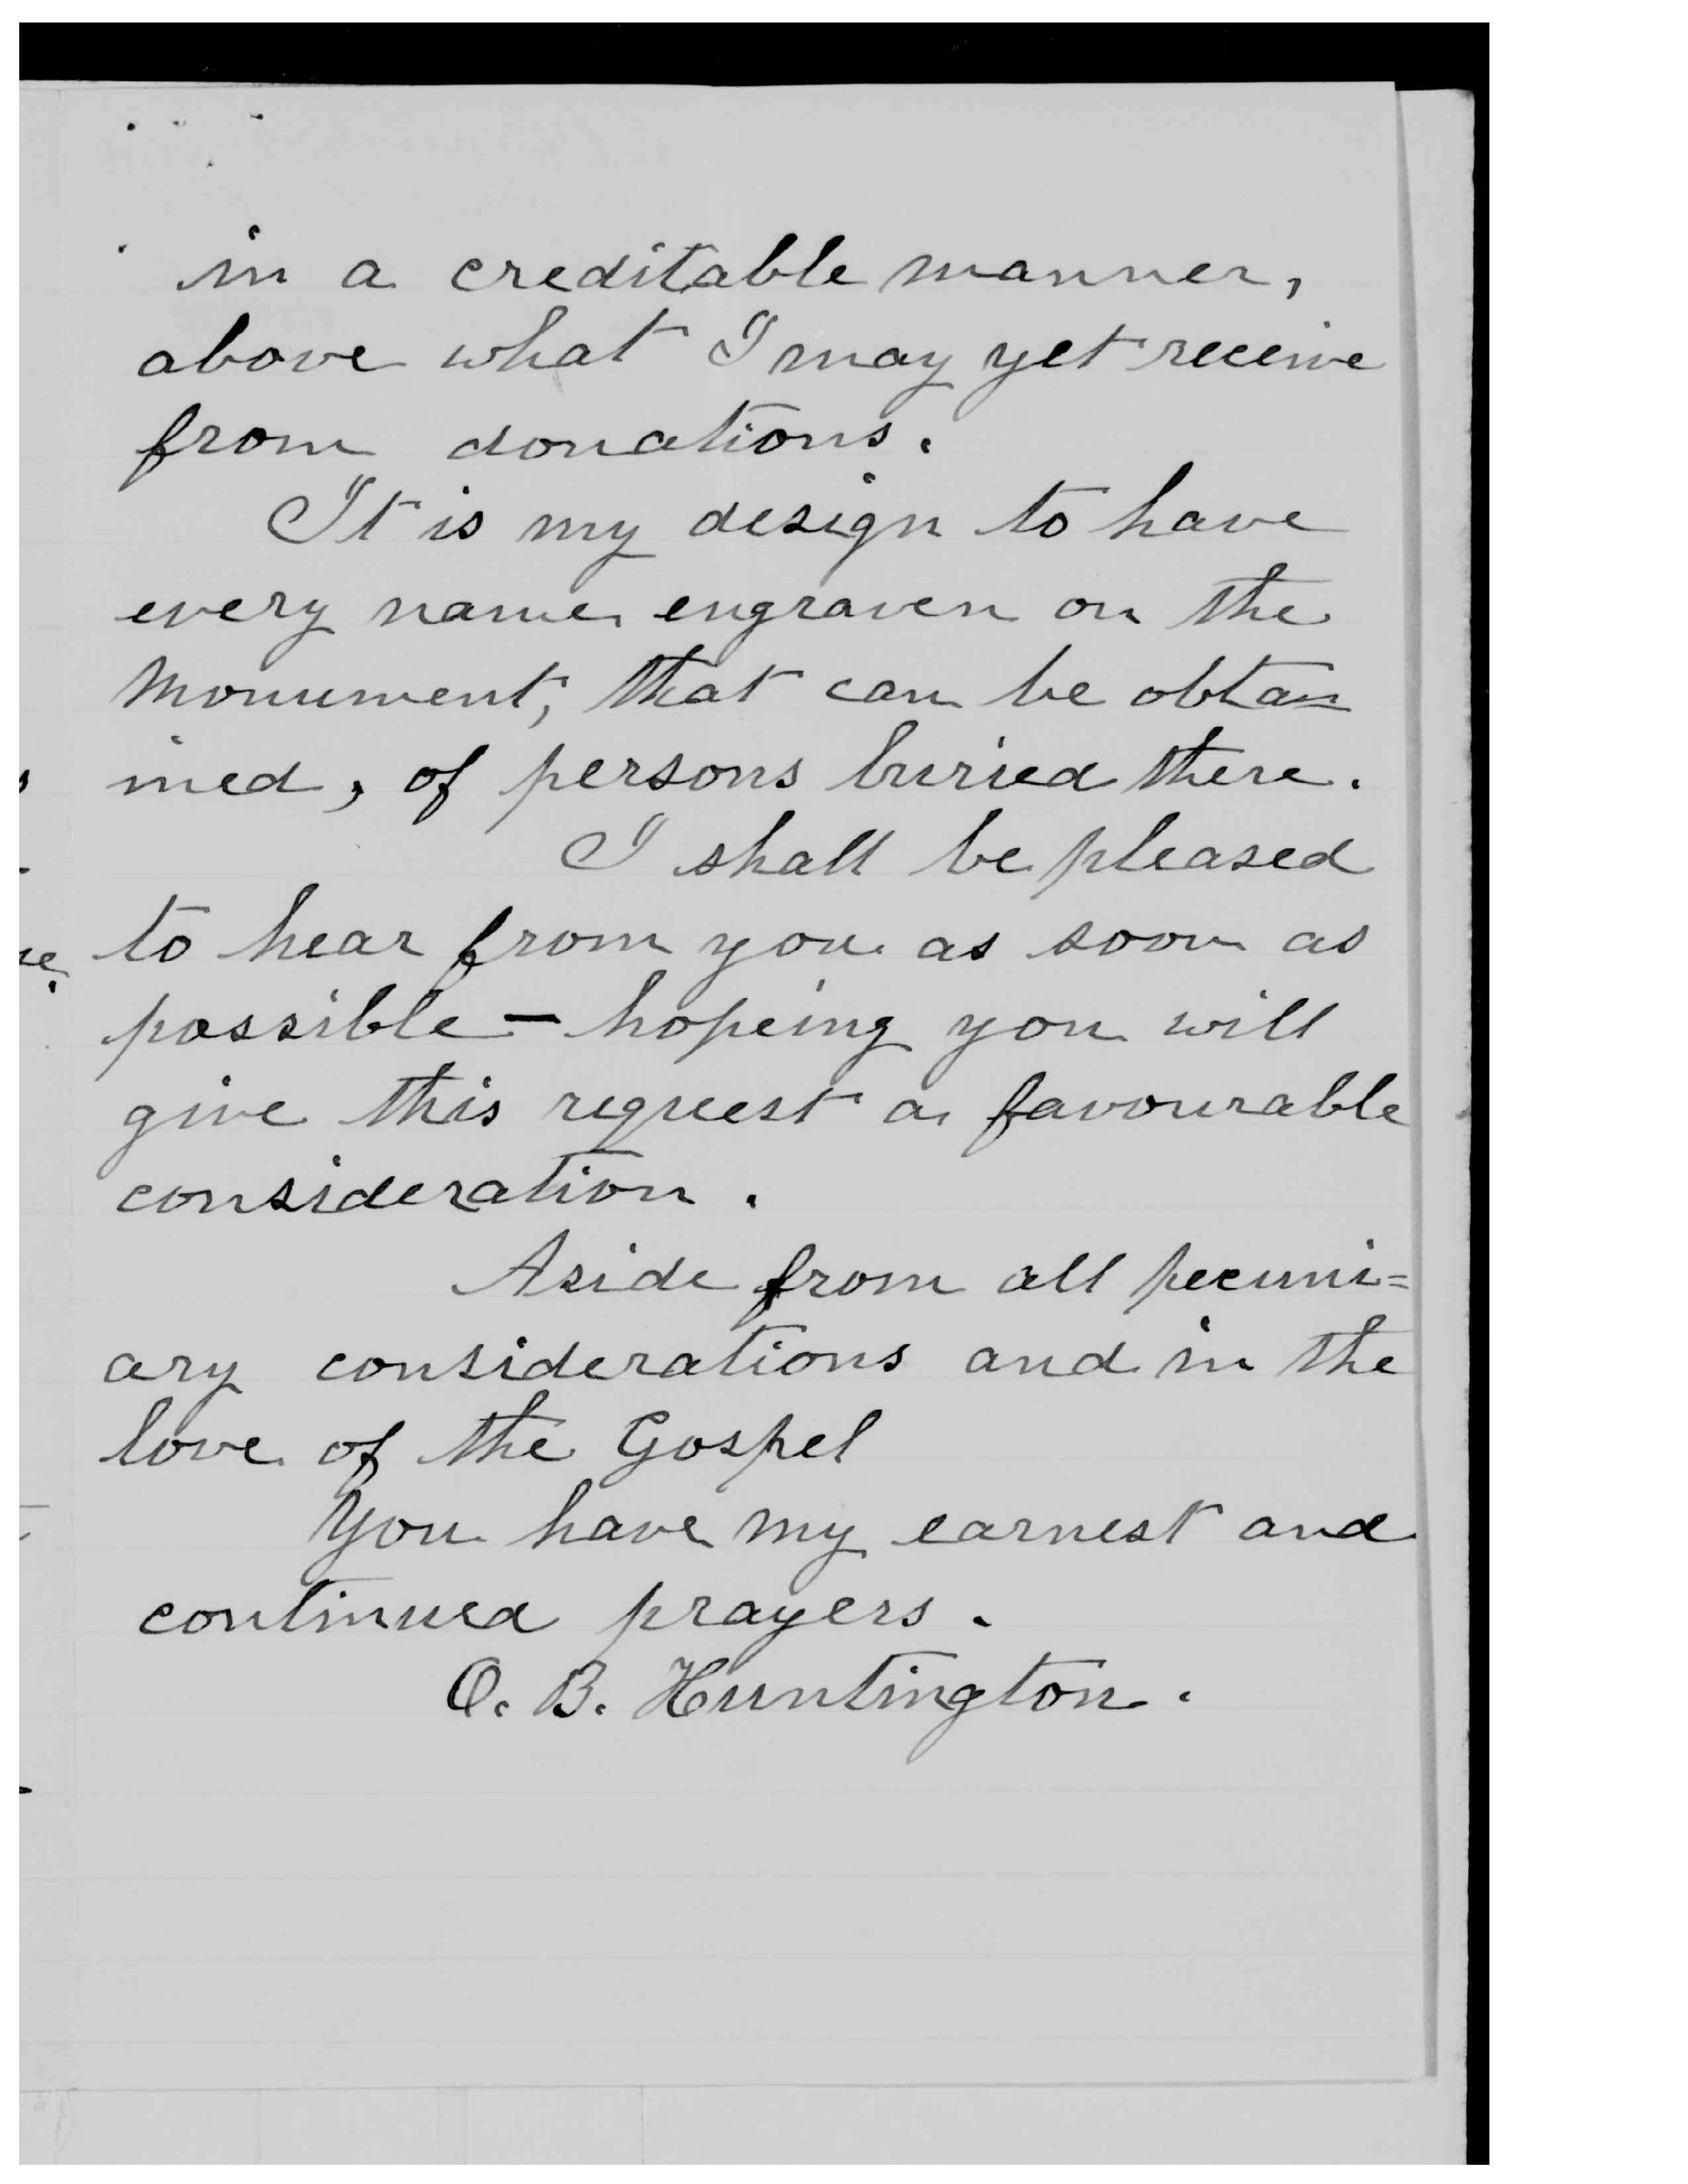 in a creditable manner,
above what I may yet receive
from donations.
It is my design to have
every name engraven on the
Monument, that can be obta=
ined, of persons buried there.
I shall be pleased
to hear from you as soon as
possible - hopeing you will
give this request a favourable
consideration.
Aside from all pecuni=
ary considerations and in the
love of the Gospel
You have my earnest and
continued prayers.
O. B. Huntington.